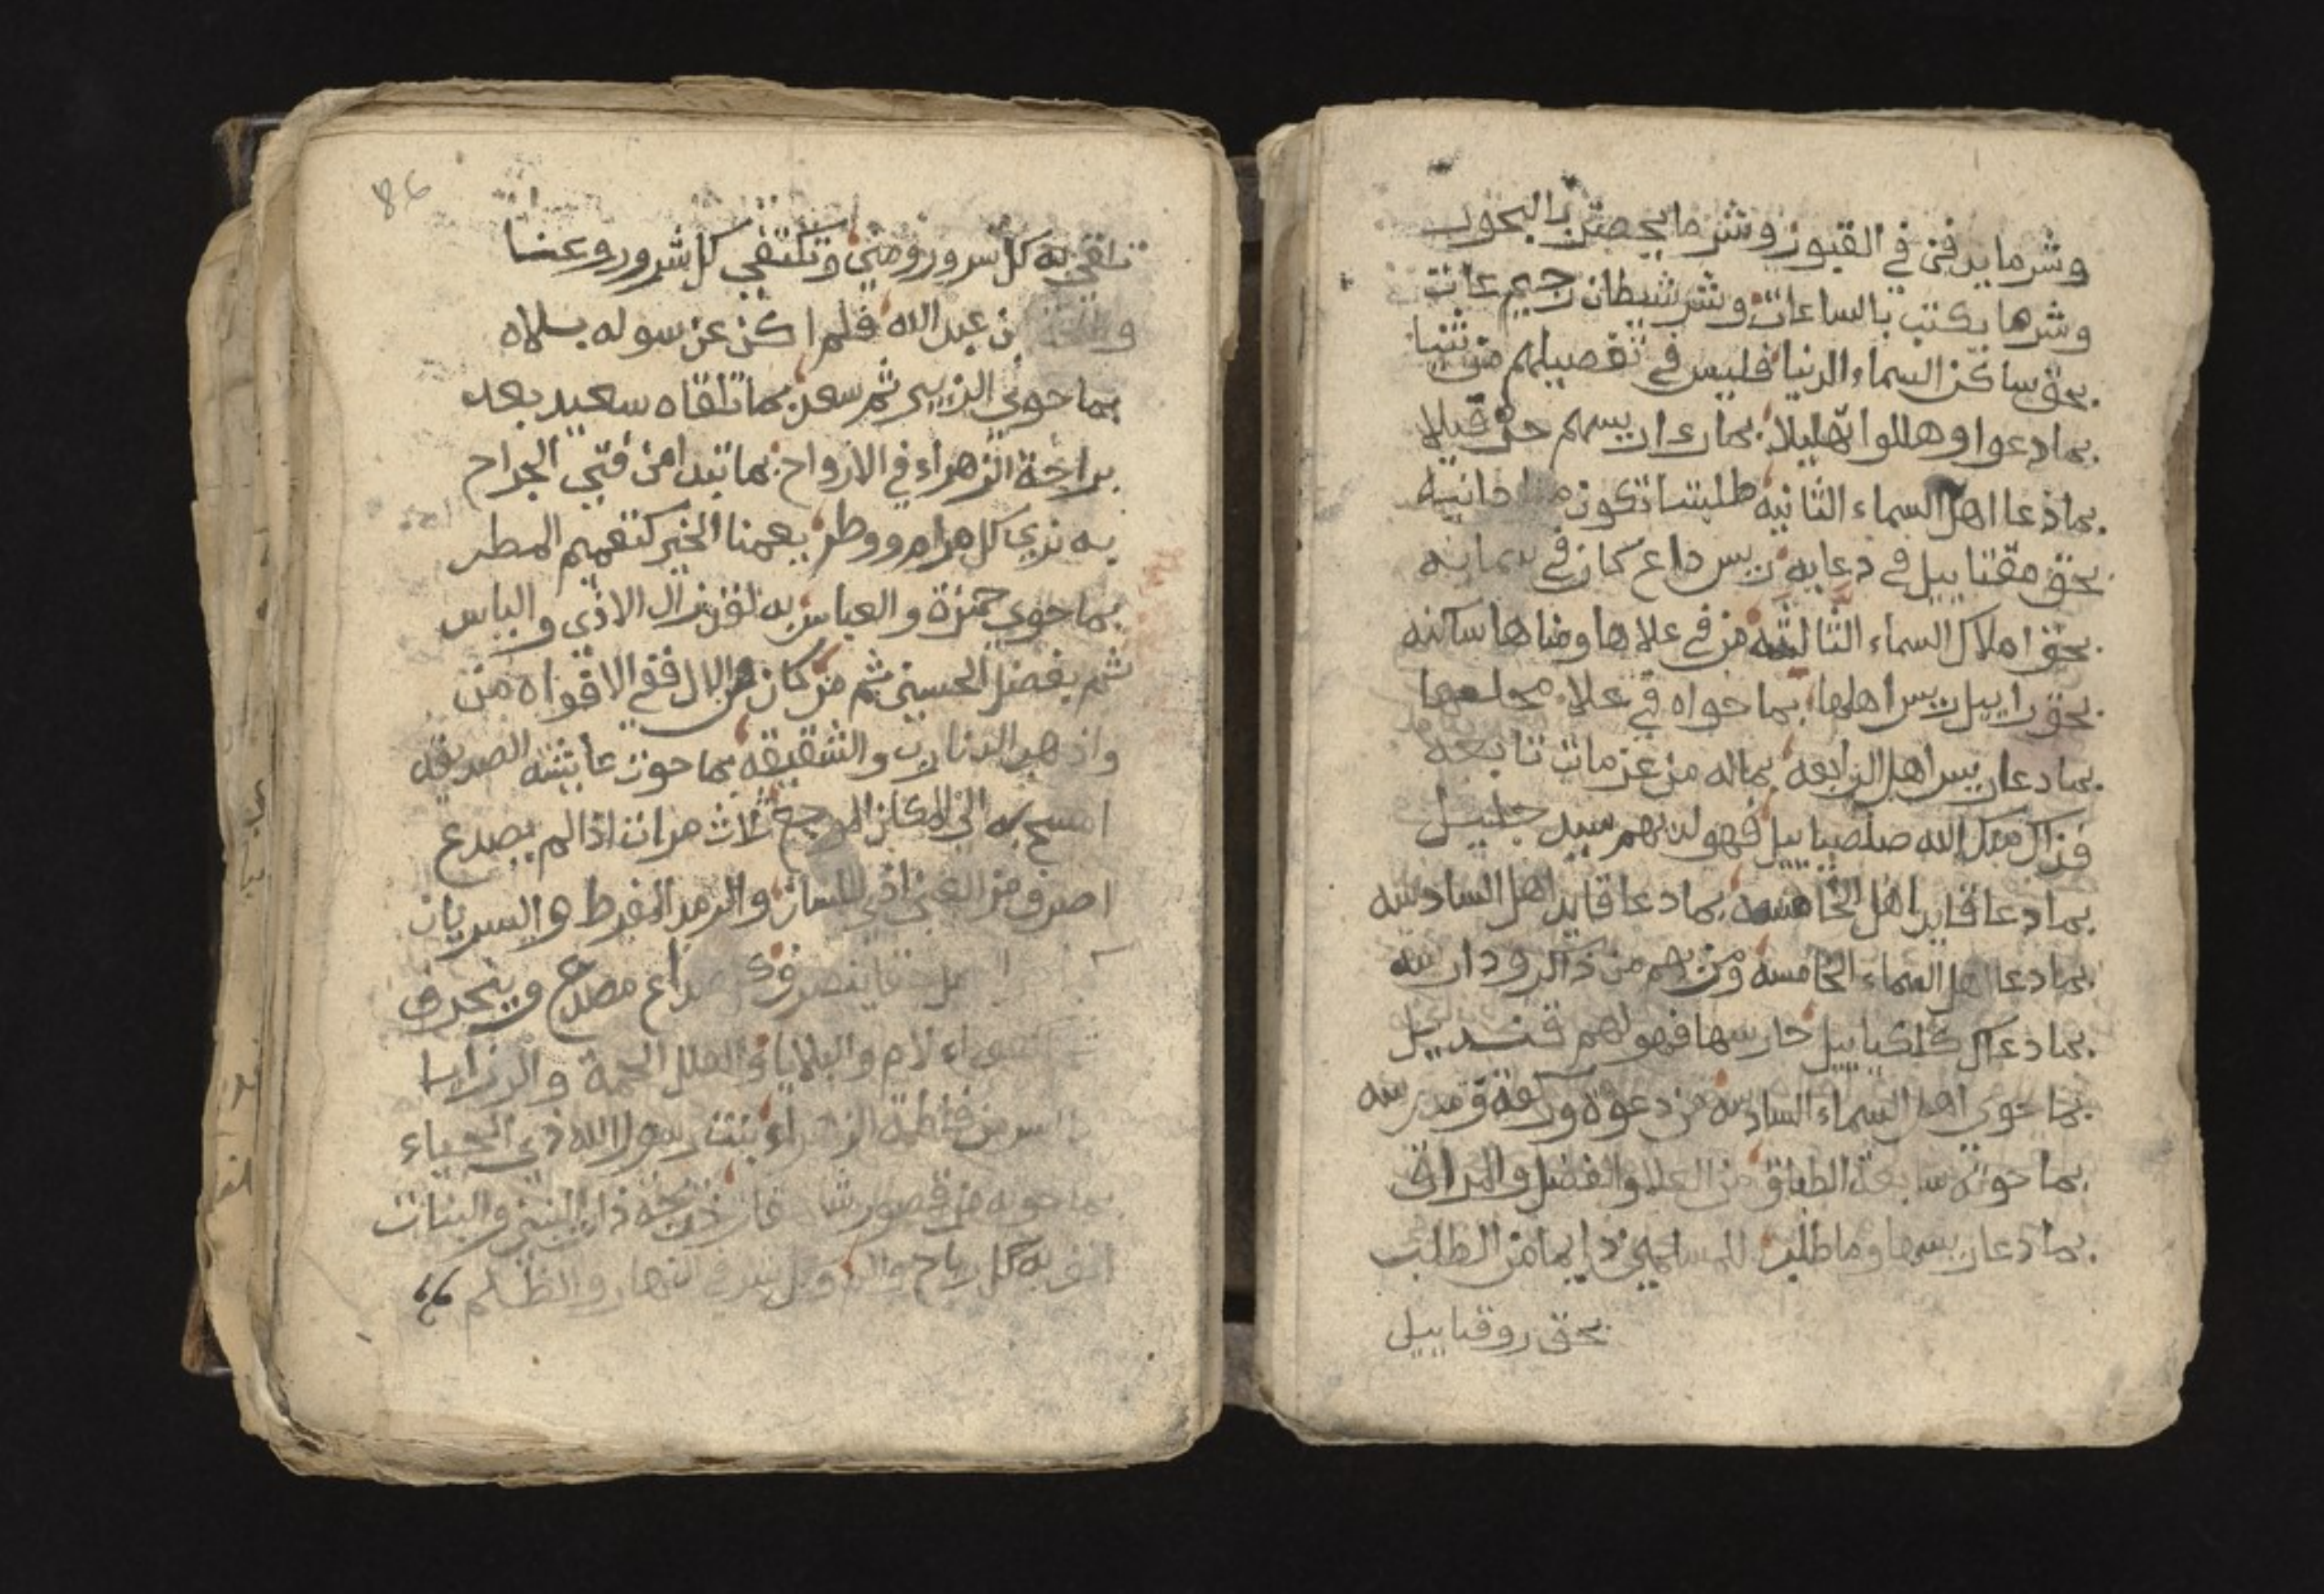 وشر ما يدفن في القبور وشر ما يحصن بالبخور
وشرها يكتب بالساعات وشر شيطان رجيم عات
بحق ساكن السماء الدنيا فليس في تفصيلهم من ثنيا
بما دعوا وهللوا تهليلا بما رييسهم حز قيلا
بما دعا اهل السماء الثانيه طلبتنا تكون دانيه
بحق مقتاييل في دعايه رييس داع كان في سمايه
بحق املاك السماء الثالثه من في علاها ومناها ساكنه
بحق راييل رييس اهلها بما حواه في علا
بما دعا رييس اهل الرابعه بماله من عزمات تابعه
فذاك ملك الله صلصياييل فهو لديهم سيد جليل
بما دعا قايد اهل الخامسه بما دعا قايد اهل السادسه
بما دعا اهل السماء الخامسه ومن بهم من ذاكر ودارسه
بما دعا كلكياييل حارسها فهو لهم قنديل
بما حوى اهل السماء السادسه من دعوة وركعة وقدسه
بما حوته سابعة الطباق من العلا والفضل والمراق
بما دعا رييسها وما طلب للمسلمين دايما من الطلب
بحق روقياييل
86
تلقى به كل سرور ومنى وتكتفي كل شرور وعنا
بن عبد الله فلم اكن عن سوله بلاه
بما حوى الزبير ثم سعد بما تلقاه سعيد بعد
براحة الزهراء في الارواح بما تبدا من فتى الجراح
به نرى كل مرام ووطر يعمنا الخير كتعميم المطر
بما حوى حمزة والعباس به لقن نزال الاذى والباس
ثم بفضل الحسين ثم من كان من الال فقي الاقواه من
واذهب الدنارب والشقيقه بما حوت عايشه الصديقه
امسح به الى المكان الموجع ثلاث مرات اذا لم يصدع
اصرف من العين اذى اللسان والرمد المفرط والسريان
ينصرف كل صداع مصدع وينحرف
الام والبلايا والعلل الجمة والرزايا
فاطمة الزهراء بنت رسول الله ذي الحياء
بما حوته من قصور خديجة ذات البنين والبنات
انف به كل رياح والم وكل شر في النهار والظلم